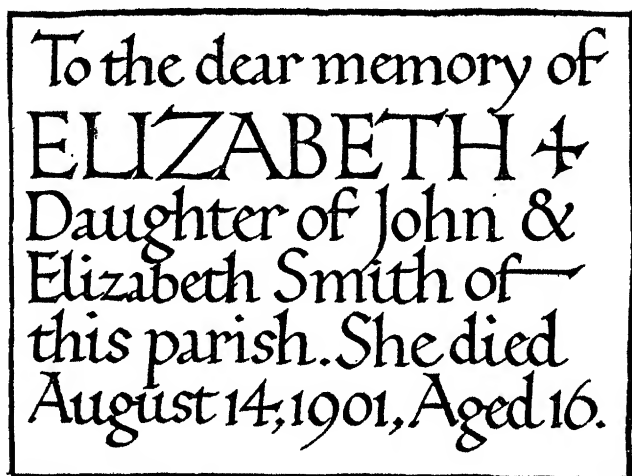 To the dear memory of
ELIZABETH +
Daughter of John &
Elizabeth Smith of—
this parish. She died
August 14, 1901, Aged 16.